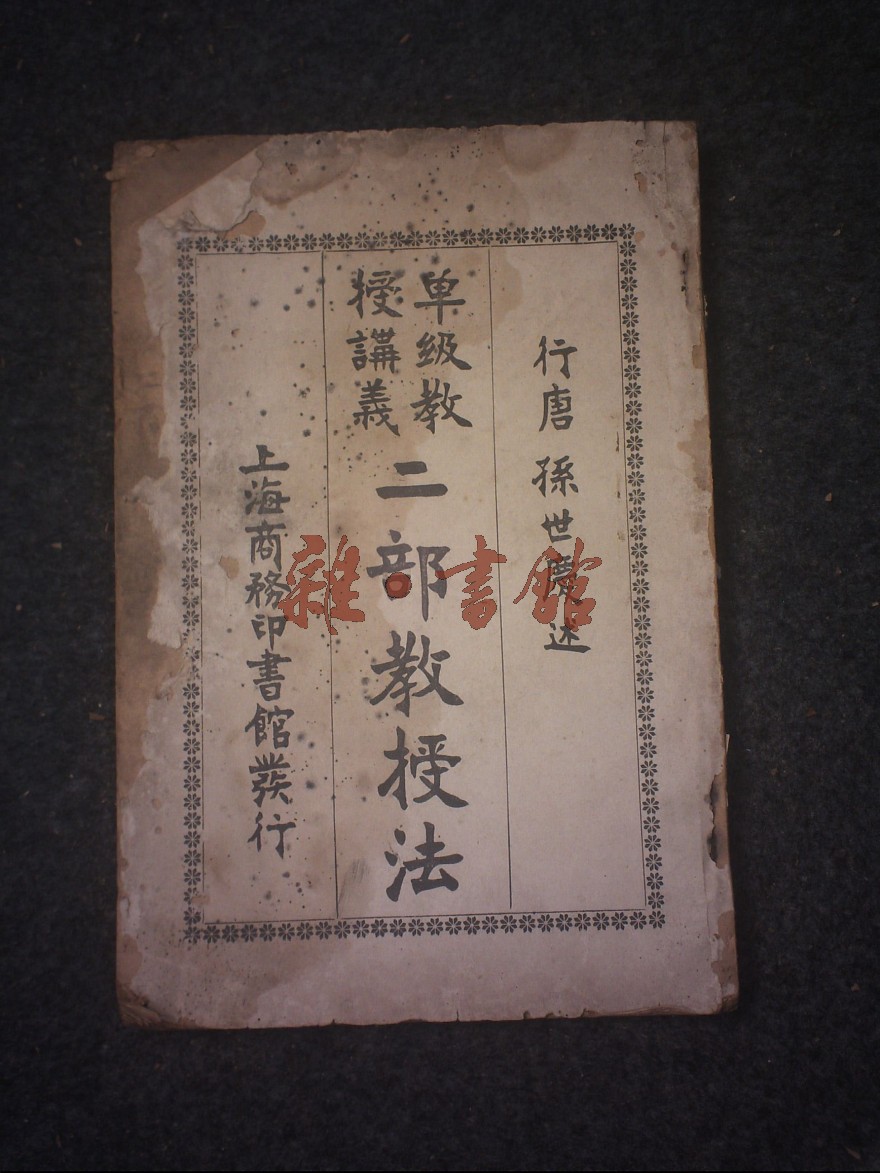 行唐孫世慶述
单級教
授講義
二部教授法
上海商務印書館發行
雜·書館